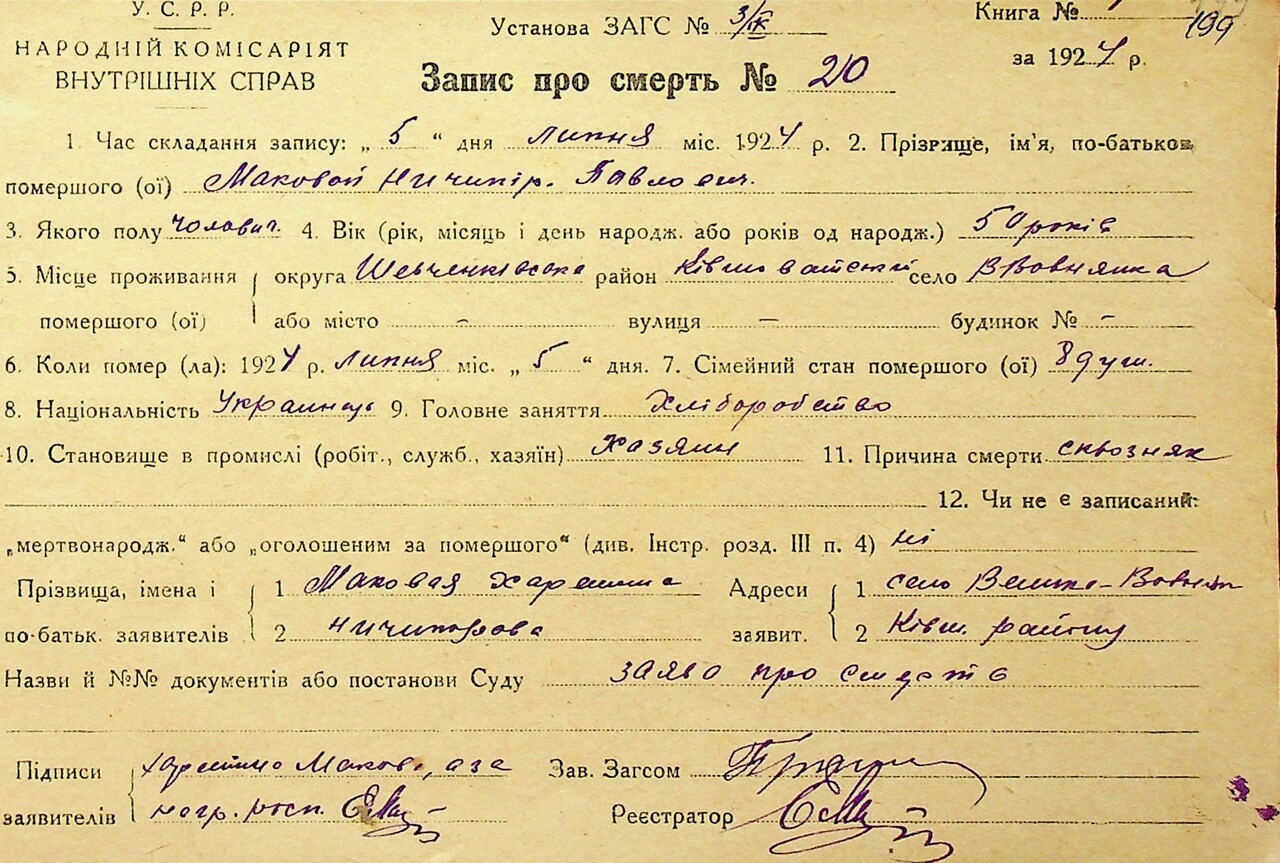 У. С. Р. Р.
НАРОДНІЙ КОМІСАРІЯТ
ВНУТРІШНІХ СПРАВ
Установа ЗАГС № 3/IX
Запис про смерть № 210
Книга №
199
за 1924 р.
1. Час складання запису: „ 5 “ дня липня міс. 1924 р. 2. Прізвище, ім'я, по-батьков
помершого (ої) Маковой Ничипір. Павлович.
3. Якого полу чолович. 4. Вік (рік, місяць і день народж. або років од народж.) 50 років
5. Місце проживання округа Шевченківська район Ківшоватський село В Вовнянка
помершого (ої) або місто – вулиця – будинок № –
6. Коли помер (ла): 1924 р. липня міс. „ 5 “ дня. 7. Сімейний стан помершого (ої) 8 душ.
8. Національність Украинець 9. Головне заняття Хліборобство
10. Становище в промислі (робіт., служб., хазяїн) Хазяин 11. Причина смерти сквозняк
12. Чи не є записаний:
„мертвонародж.“ або „оголошеним за помершого“ (див. Інстр. розд. III п. 4) ні
Прізвища, імена і 1 Маковая Харитина Адреси 1 село Велика-Вовнян
по-батьк. заявителів 2 Ничипорова заявит. 2 Ківш. району
Назви й №№ документів або постанови Суду заява про смерть
Підписи Харитина Макова, а за Зав. Загсом
заявителів негр. росп. Реєстратор